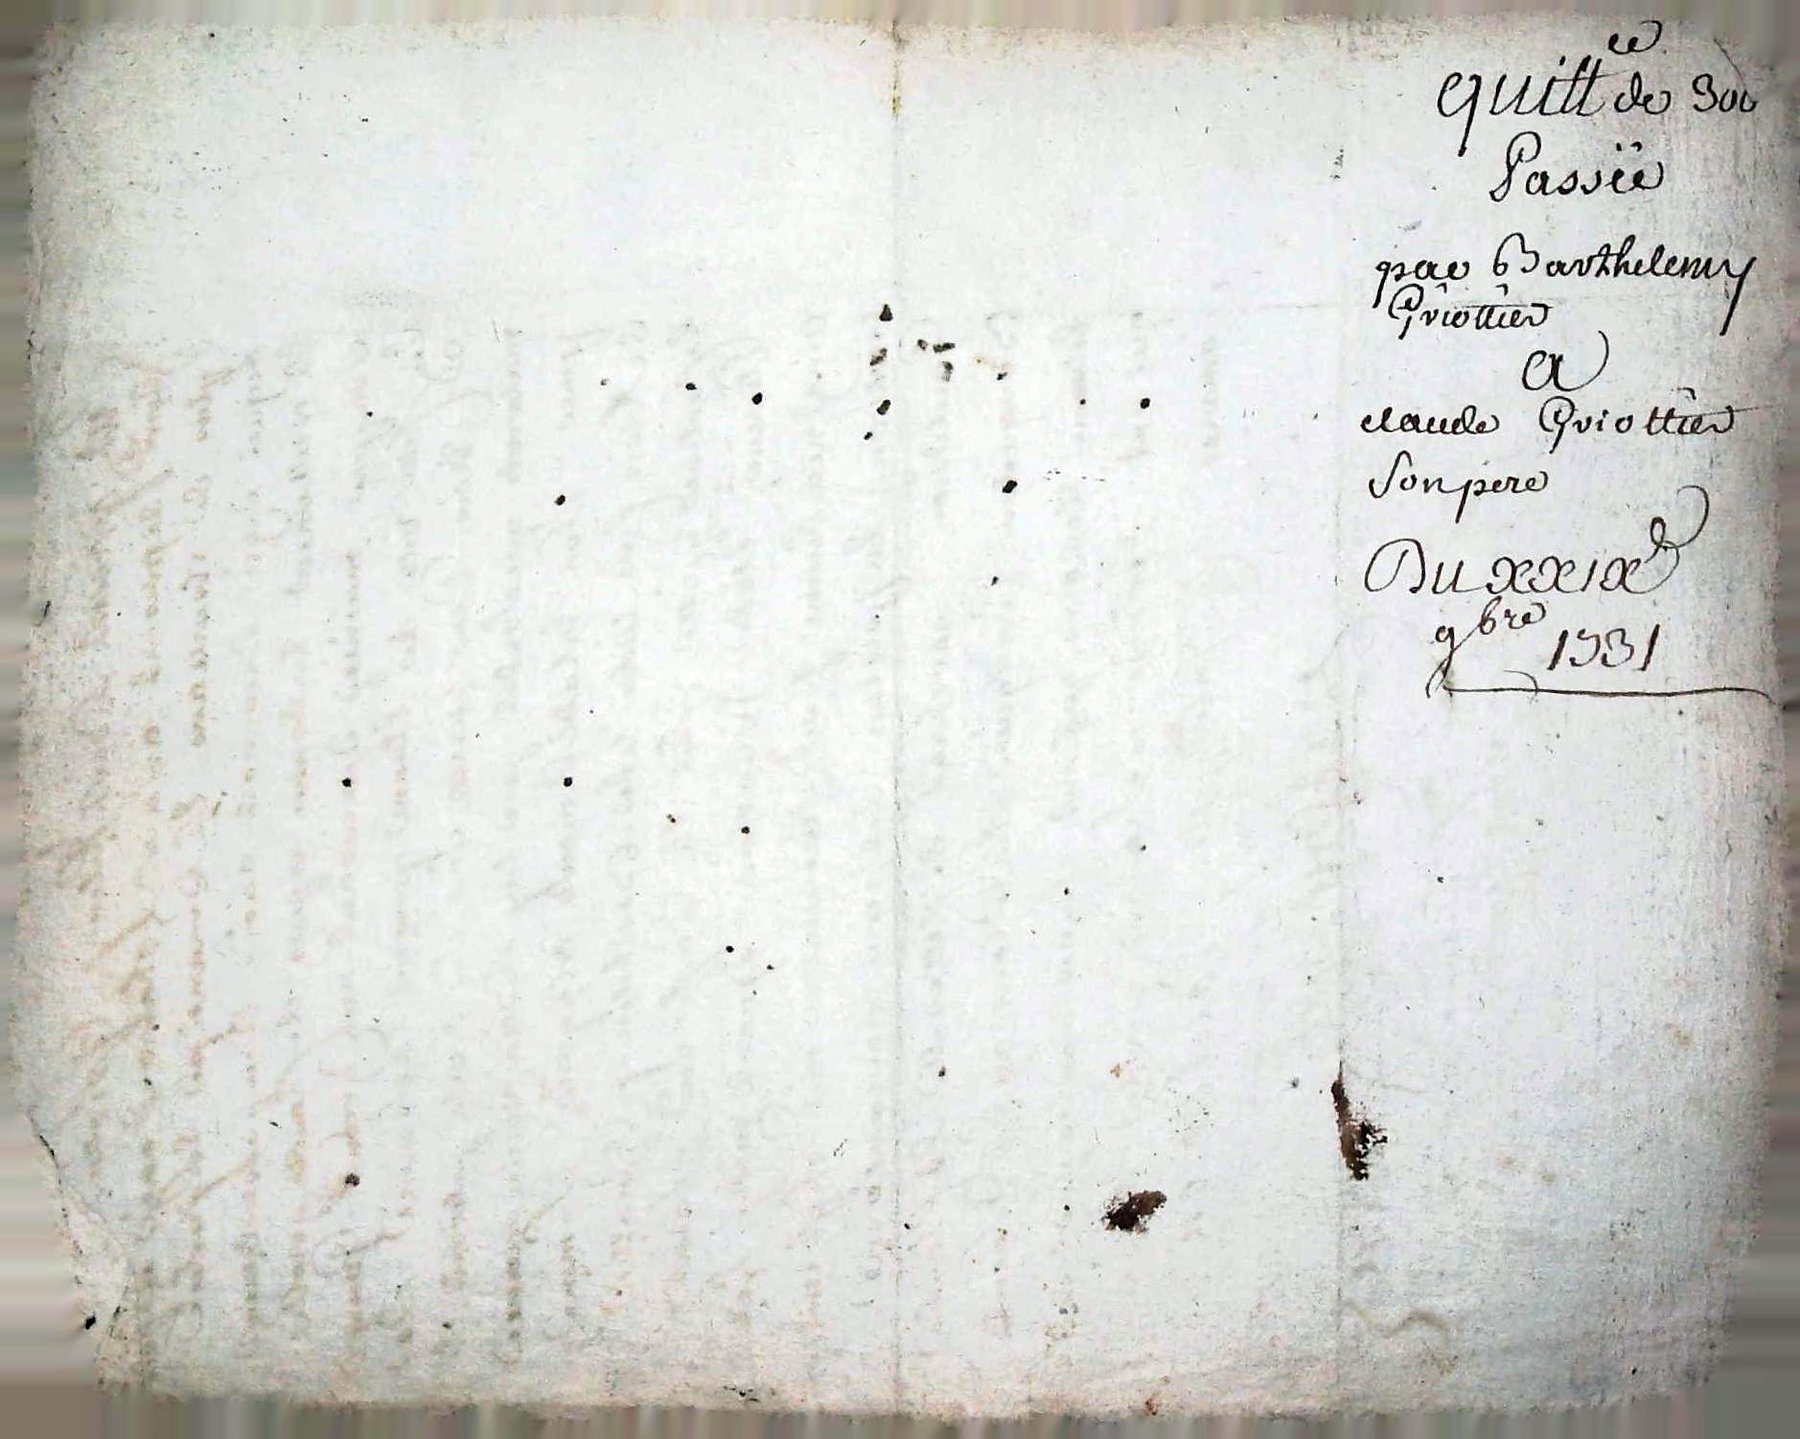 quitt.ce de 300
Passëe
par Barthelemy
Griottier
a
claude Griottier
son pere
Du XXIXe
9bre 1731